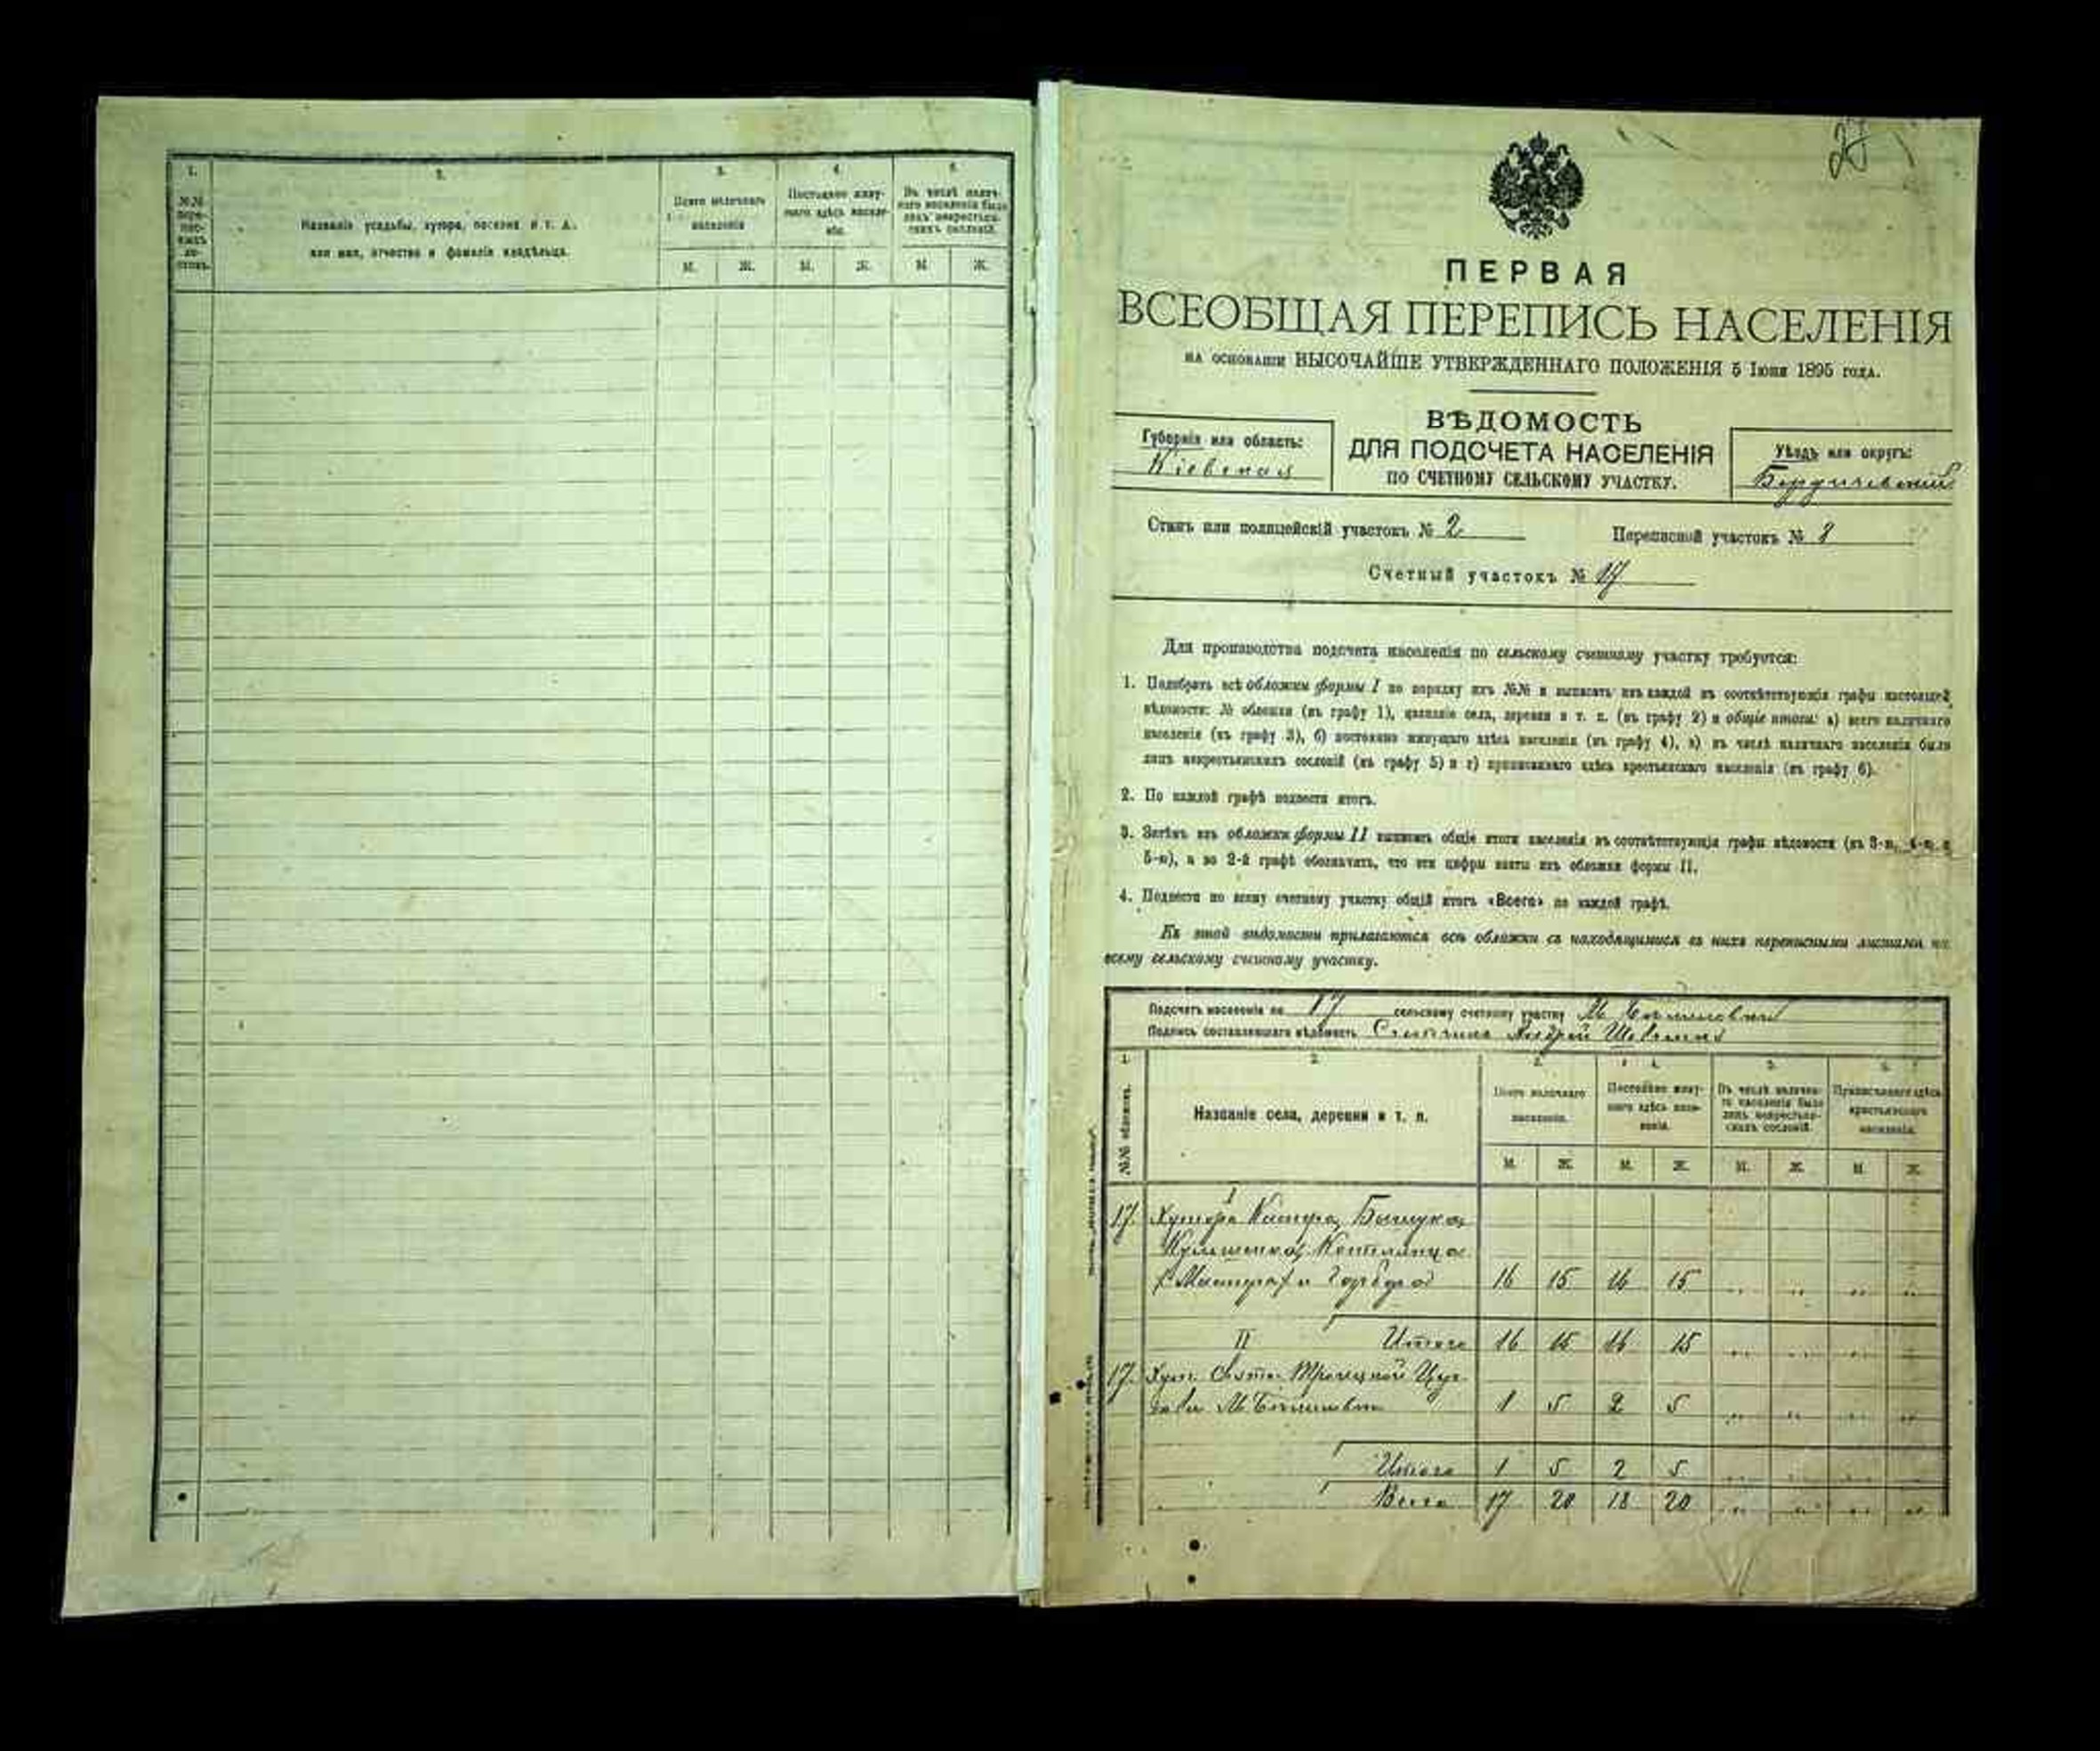 1.
2.
3.
4.
5.
№№ пере-
пис-
ныхъ
ли-
стовъ.
Названіе усадьбы, хутора, поселка и т. д.
или имя, отчество и фамилія владѣльца.
Всего наличнаго
населенія
Постоянно живу-
щаго здѣсь населе-
нія.
Въ числѣ налич-
наго населенія было
лицъ некрестьян-
скихъ сословій.
М. Ж. М. Ж. М. Ж.
27
ПЕРВАЯ
ВСЕОБЩАЯ ПЕРЕПИСЬ НАСЕЛЕНІЯ
НА ОСНОВАНІИ ВЫСОЧАЙШЕ УТВЕРЖДЕННАГО ПОЛОЖЕНІЯ 5 Іюня 1895 ГОДА.
Губернія или область:
Кіевская
ВѢДОМОСТЬ
ДЛЯ ПОДСЧЕТА НАСЕЛЕНІЯ
ПО СЧЕТНОМУ СЕЛЬСКОМУ УЧАСТКУ.
Уѣздъ или округъ:
Бердичевскій
Станъ или полицейскій участокъ № 2
Переписной участокъ №
Счетный участокъ № 17
Для производства подсчета населенія по сельскому счетному участку требуется:
1. Подобрать всѣ обложки формы I по порядку ихъ №№ и выписать изъ каждой въ соотвѣтствующія графы настоящей
вѣдомости: № обложки (въ графу 1), названіе села, деревни и т. п. (въ графу 2) и общіе итоги: а) всего наличнаго
населенія (въ графу 3), б) постоянно живущаго здѣсь населенія (въ графу 4), в) въ числѣ наличнаго населенія было
лицъ некрестьянскихъ сословій (въ графу 5) и г) приписаннаго здѣсь крестьянскаго населенія (въ графу 6).
2. По каждой графѣ подвести итогъ.
3. Затѣмъ изъ обложки формы II выписать общіе итоги населенія въ соотвѣтствующія графы вѣдомости (въ 3-ю, 4-ю и
5-ю), а во 2-й графѣ обозначить, что эти цифры взяты изъ обложки формы II.
4. Подвести по всему счетному участку общій итогъ «Всего» по каждой графѣ.
Къ этой вѣдомости прилагаются всѣ обложки съ находящимися въ нихъ переписными листами по
всему сельскому счетному участку.
Подсчетъ населенія по 17 сельскому счетному участку М.
Подпись составлявшаго вѣдомость Андрей
1. 2. 3. 4. 5. 6.
№№ обложекъ.
Названіе села, деревни и т. п.
Всего наличнаго
населенія.
Постоянно живу-
щаго здѣсь насе-
ленія.
Въ числѣ налична-
го населенія было
лицъ некрестьян-
скихъ сословій.
Приписаннаго здѣсь
крестьянскаго
населенія.
М. Ж. М. Ж. М. Ж. М. Ж.
I
17. Хутора
16 15 16 15 „ „ „ „
II Итого 16 15 16 15 „ „ „ „
17. Хут. Свято-Троицкой Цер-
кви М. 1 5 2 5 „ „ „ „
Итого 1 5 2 5 „ „ „ „
Всего 17 20 18 20 „ „ „ „